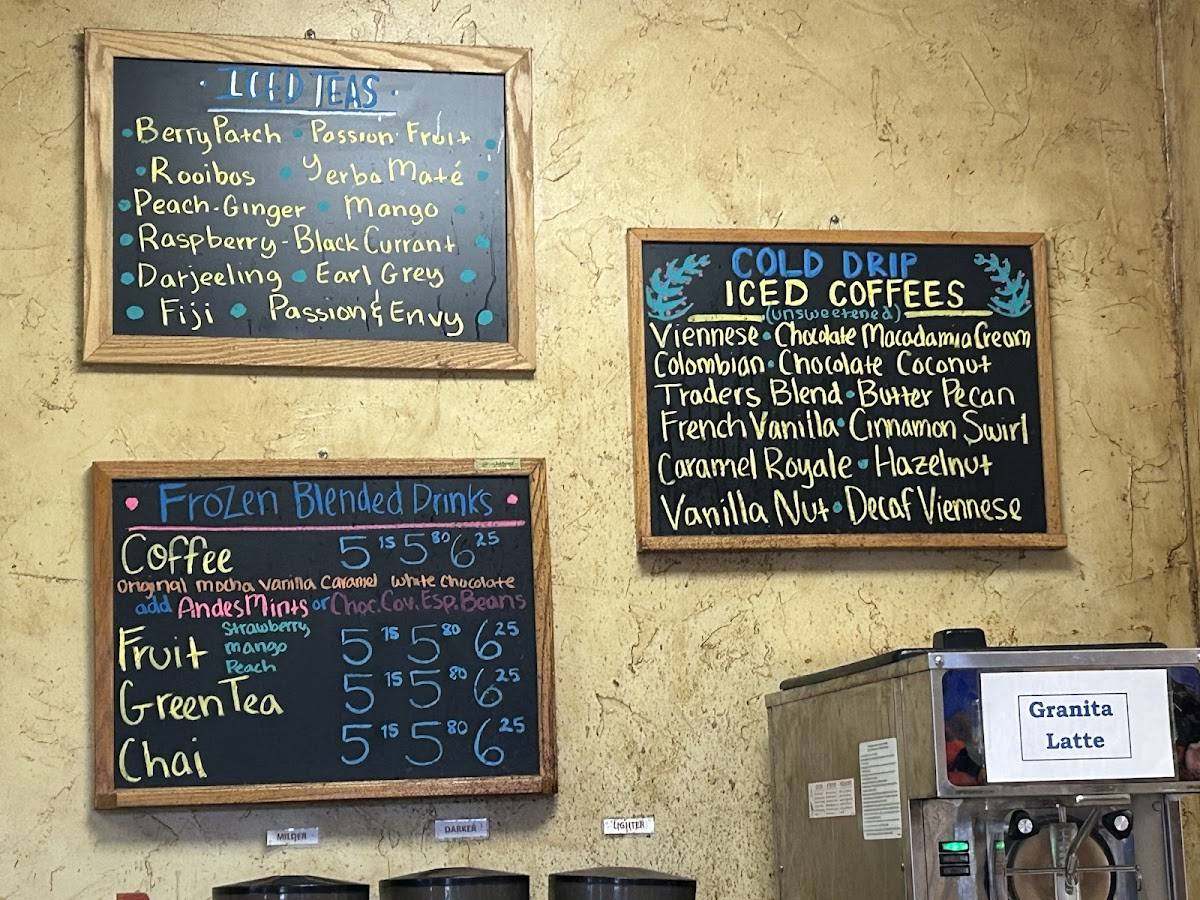 • ICED TEAS •
• Berry Patch • Passion Fruit •
• Rooibos • Yerba Maté •
• Peach-Ginger • Mango •
• Raspberry-Black Currant •
• Darjeeling • Earl Grey •
• Fiji • Passion & Envy •
COLD DRIP
ICED COFFEES
(unsweetened)
Viennese • Chocolate Macadamia Cream
Colombian • Chocolate Coconut
Traders Blend • Butter Pecan
French Vanilla • Cinnamon Swirl
Caramel Royale • Hazelnut
Vanilla Nut • Decaf Viennese
Frozen Blended Drinks
Coffee 5 15 5 80 6 25
Original mocha vanilla caramel white chocolate
add Andes Mints or Choc. Cov. Esp. Beans
Fruit Strawberry, 5 15 5 80 6 25
mango
Peach
Green Tea 5 15 5 80 6 25
Chai 5 15 5 80 6 25
Granita
Latte
MILDER
DARKER
LIGHTER